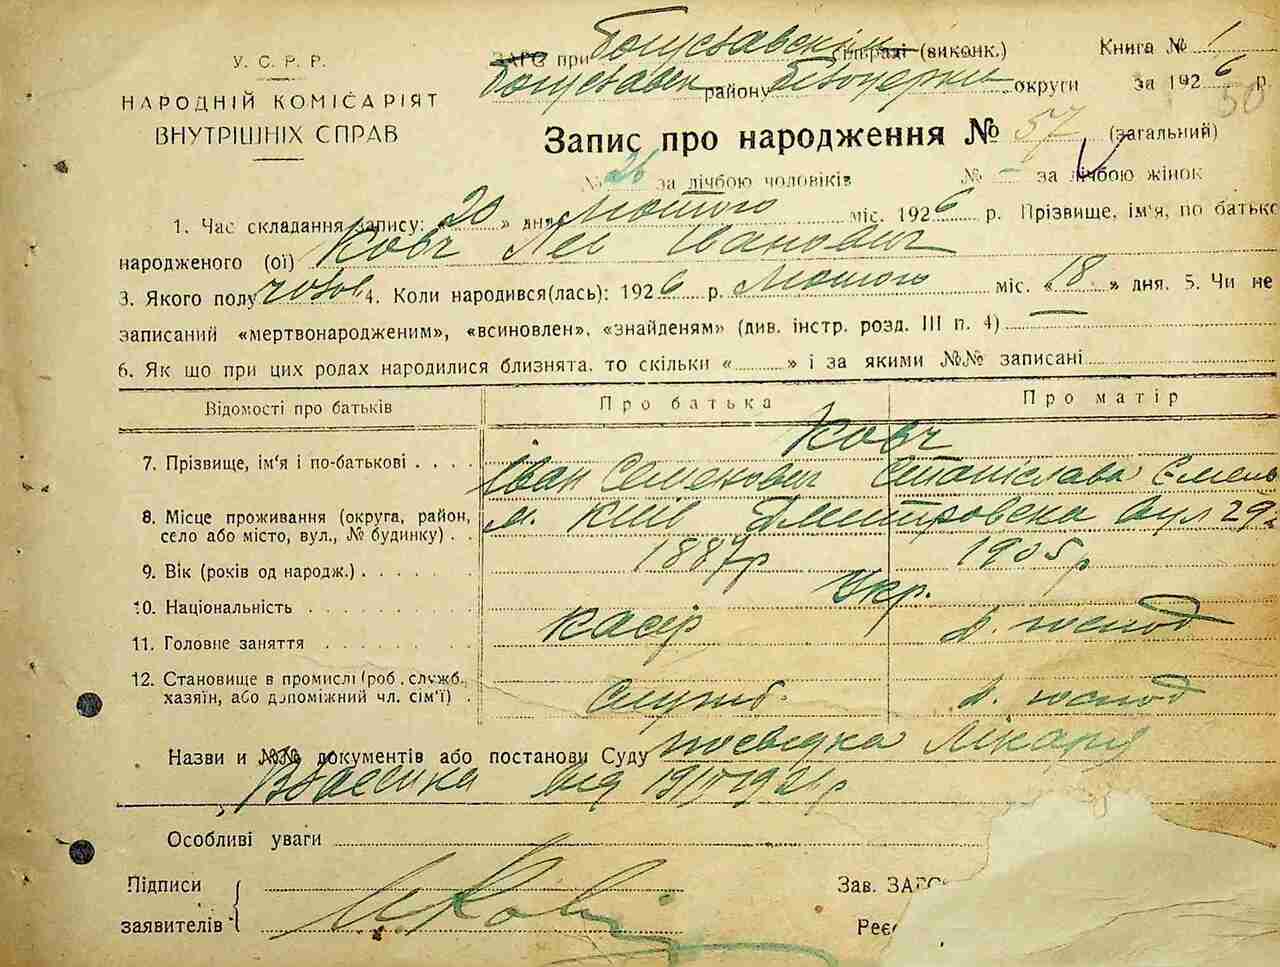 У. С. Р. Р.
НАРОДНІЙ КОМІСАРІЯТ
ВНУТРІШНІХ СПРАВ
ЗАГС при Богуславскім райраді (виконк.) Книга № 1
Богуславск району Білоцерки округи за 1926 р.
50
Запис про народження № 57 (загальний)
№ 26 за лічбою чоловіків № – за лічбою жінок
1. Час складання запису: «20» дня Лютого міс. 1926 р. Прізвище, ім'я, по батьк
народженого (ої) Ковч Лев Іванович
3. Якого полу чолов 4. Коли народився(лась): 1926 р. Лютого міс. «18» дня. 5. Чи не
записаний «мертвонародженим», «всиновлен», «знайденям» (див. інстр. розд. III п. 4) —
6. Як що при цих родах народилися близнята, то скільки « » і за якими №№ записані
Відомості про батьків Про батька Про матір
Ковч
7. Прізвище, ім'я і по-батькові Іван Семенович Станіслава Емель
8. Місце проживання (округа, район, село або місто, вул., № будинку) м. Київ Дмитровска вул 29
9. Вік (років од народж.) 1887р 1905р
10. Національність Укр.
11. Головне заняття касір д. господ
12. Становище в промислі (роб., служб., хазяїн, або допоміжний чл. сім'ї) служб. д. господ
Назви и №№ документів або постанови Суду посвідка Лікаря
від
Особливі уваги
Підписи
заявителів
Зав. ЗАГС
Реє